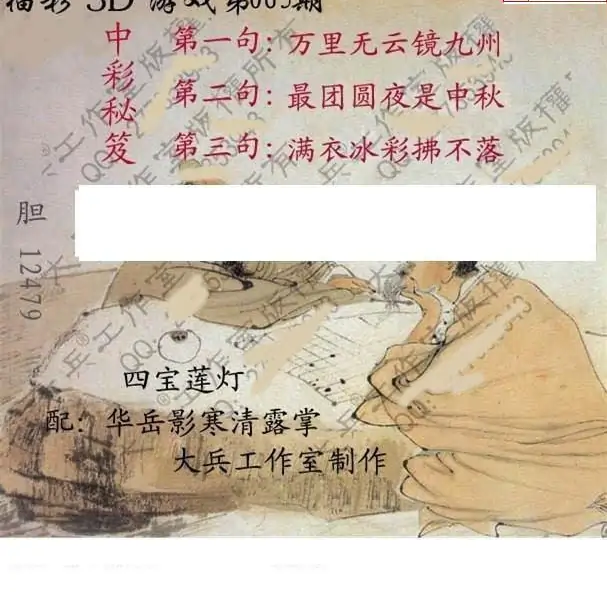 福彩 3D 游戏第005期
中彩秘笈
第一句：万里无云镜九州
第二句：最团圆夜是中秋
第三句：满衣冰彩拂不落
胆 12479
四宝莲灯
配：华岳影寒清露掌
大兵工作室制作